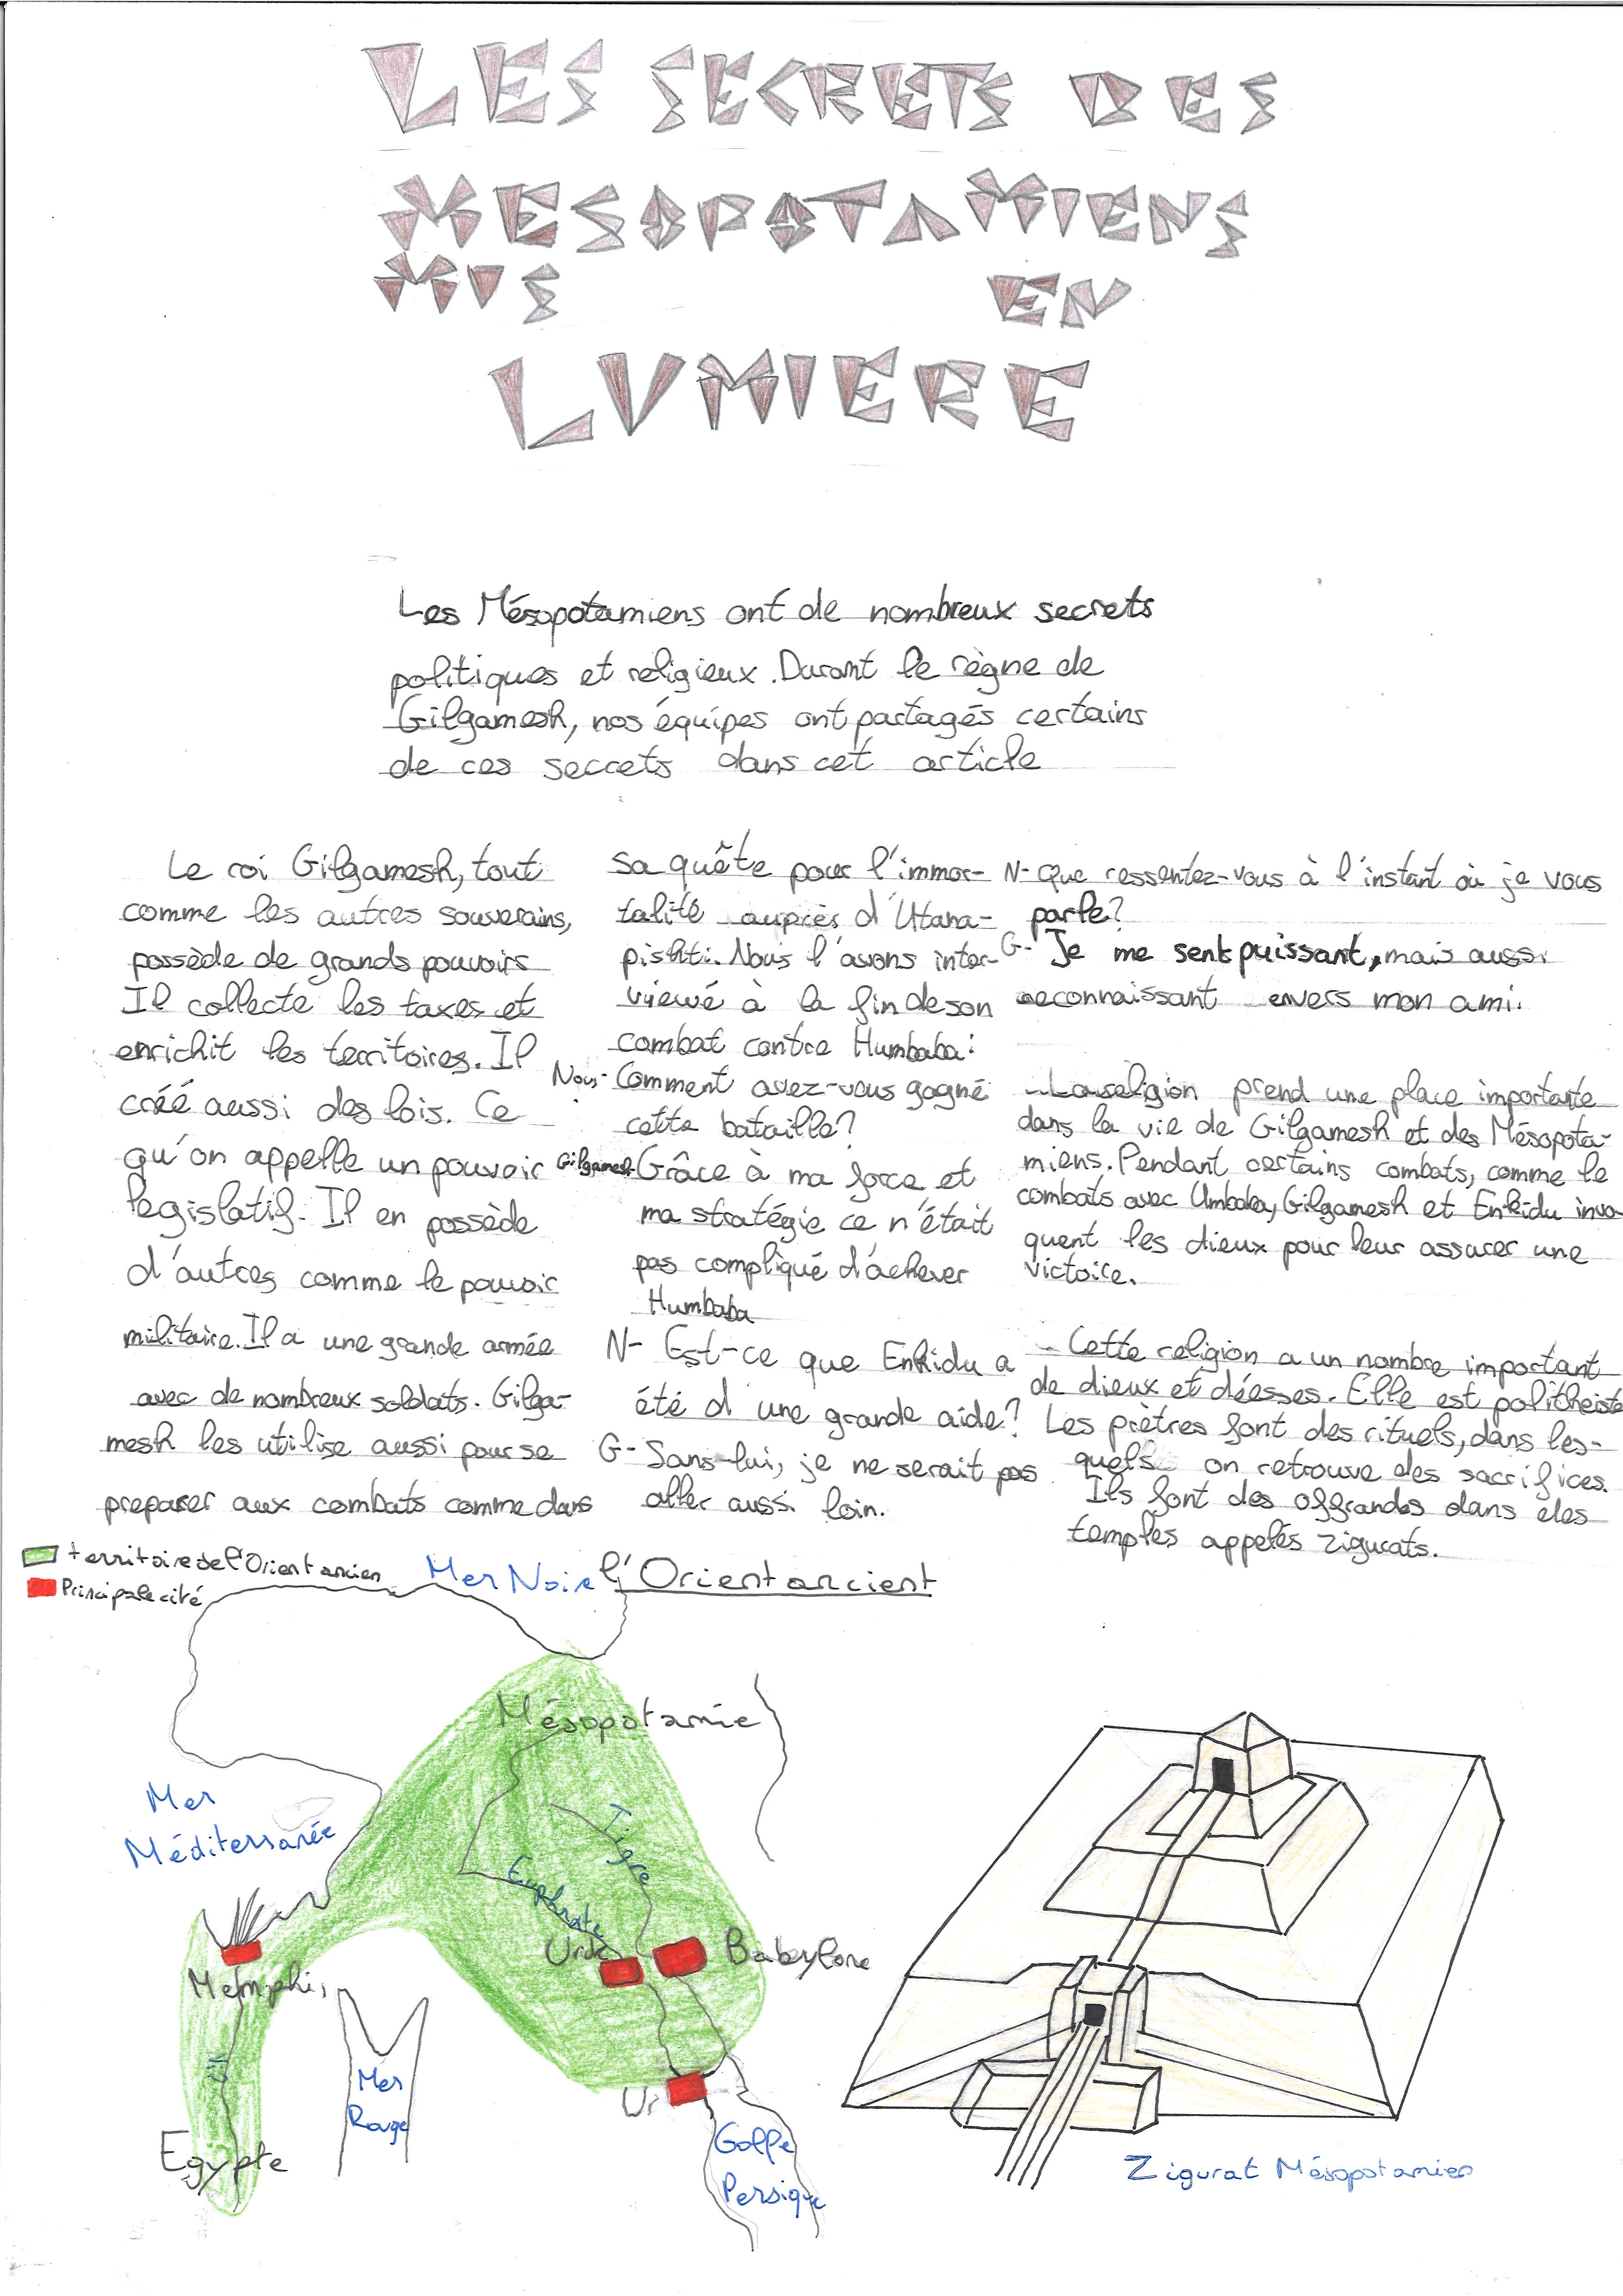 LES SECRETS DES
MESOPOTAMIENS
MIS EN
LUMIERE
Les Mésopotamiens ont de nombreux secrets
politiques et religieux. Durant le règne de
Gilgamesh, nos équipes ont partagés certains
de ces secrets dans cet article
Le roi Gilgamesh, tout
comme les autres souverains,
possède de grands pouvoirs
Il collecte les taxes et
enrichit les territoires. Il
créé aussi des lois. Ce
qu'on appelle un pouvoir
legislatif. Il en possède
d'autres comme le pouvoir
militaire. Il a une grande armée
avec de nombreux soldats. Gilga-
mesh les utilise aussi pour se
preparer aux combats comme dans
sa quête pour l'immor-
talité auprès d'Utana-
pishti. Nous l'avons inter-
viewé à la fin de son
combat contre Humbaba:
Nous- Comment avez-vous gagné
cette bataille?
Gilgamesh- Grâce à ma force et
ma stratégie ce n'était
pas compliqué d'achever
Humbaba
N- Est-ce que Enkidu a
été d'une grande aide?
G- Sans-lui, je ne serait pas
aller aussi loin.
N- Que ressentez-vous à l'instant où je vous
parle?
G- Je me sent puissant, mais aussi
reconnaissant envers mon ami.
La religion prend une place importante
dans la vie de Gilgamesh et des Mésopota-
miens. Pendant certains combats, comme le
combats avec Umbaba, Gilgamesh et Enkidu invo-
quent les dieux pour leur assurer une
victoire.
Cette religion a un nombre important
de dieux et déesses. Elle est politheiste
Les prètres font des rituels, dans les-
quels on retrouve des sacrifices.
Ils font des offrandes dans des
temples appelés zigurats.
territoire de l'Orient ancien
Principale cité
l'Orient ancient
Mer Noire
Mésopotamie
Mer
Méditerranée
Tigre
Euphrate
Uruk
Babylone
Memphis
Nil
Mer
Rouge
Ur
Egypte
Golfe
Persique
Zigurat Mésopotamien